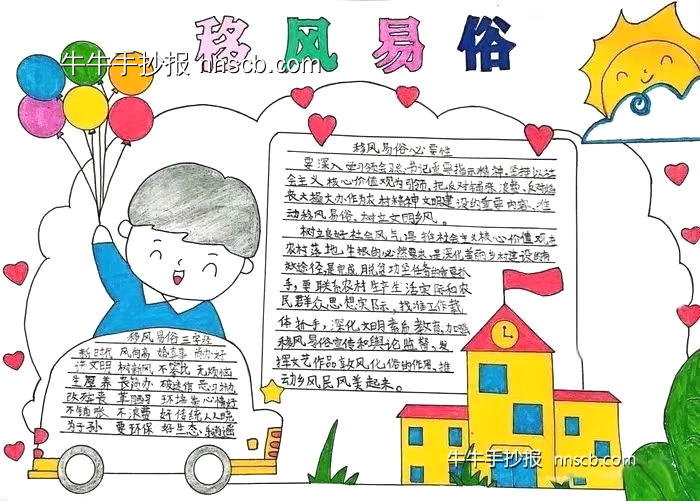 移风易俗
牛牛手抄报 nnscb.com
移风易俗必要性
要深入学习领会习总书记重要指示精神,坚持以社
会主义核心价值观为引领,把反对铺张浪费、反对婚
丧大操大办作为农村精神文明建设的重要内容,推
动移风易俗,树立文明乡风。
树立良好社会风气,是推社会主义核心价值观在
农村落地生根的必然要求,是深化美丽乡村建设的有
效途径,是完成脱贫攻坚任务的重要抓
手,要联系农村生产生活实际和农
民群众思想实际,找准工作载
体抓手,深化文明素质教育,加强
移风易俗宣传和舆论监督、发
挥文艺作品敦风化俗的作用,推
动乡风民风美起来。
移风易俗三字经
新时代 风向高 婚喜事 尚办好
讲文明 树新风 不攀比 无烦恼
生厚养 丧简办 破迷信 恶习抛
不铺张 不浪费 好传统 人人晓
为子孙 要环保 好生态 乐逍遥
牛牛手抄报 nnscb.com